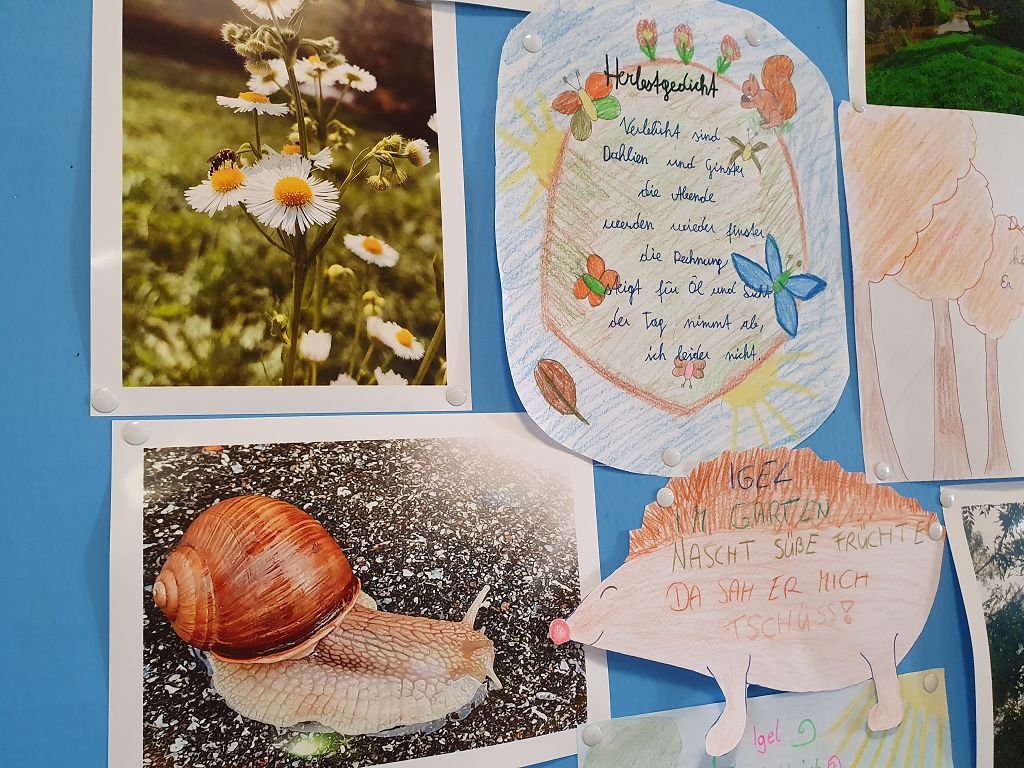 Herbstgedicht
Verblüht sind
Dahlien und Ginster
die Abende
werden wieder finster
die Rechnung
steigt für Öl und Licht
der Tag nimmt ab,
ich leider nicht.
IGEL
IM GARTEN
NASCHT SÜßE FRÜCHTE
DA SAH ER MICH
TSCHÜSS!
Er
Igel